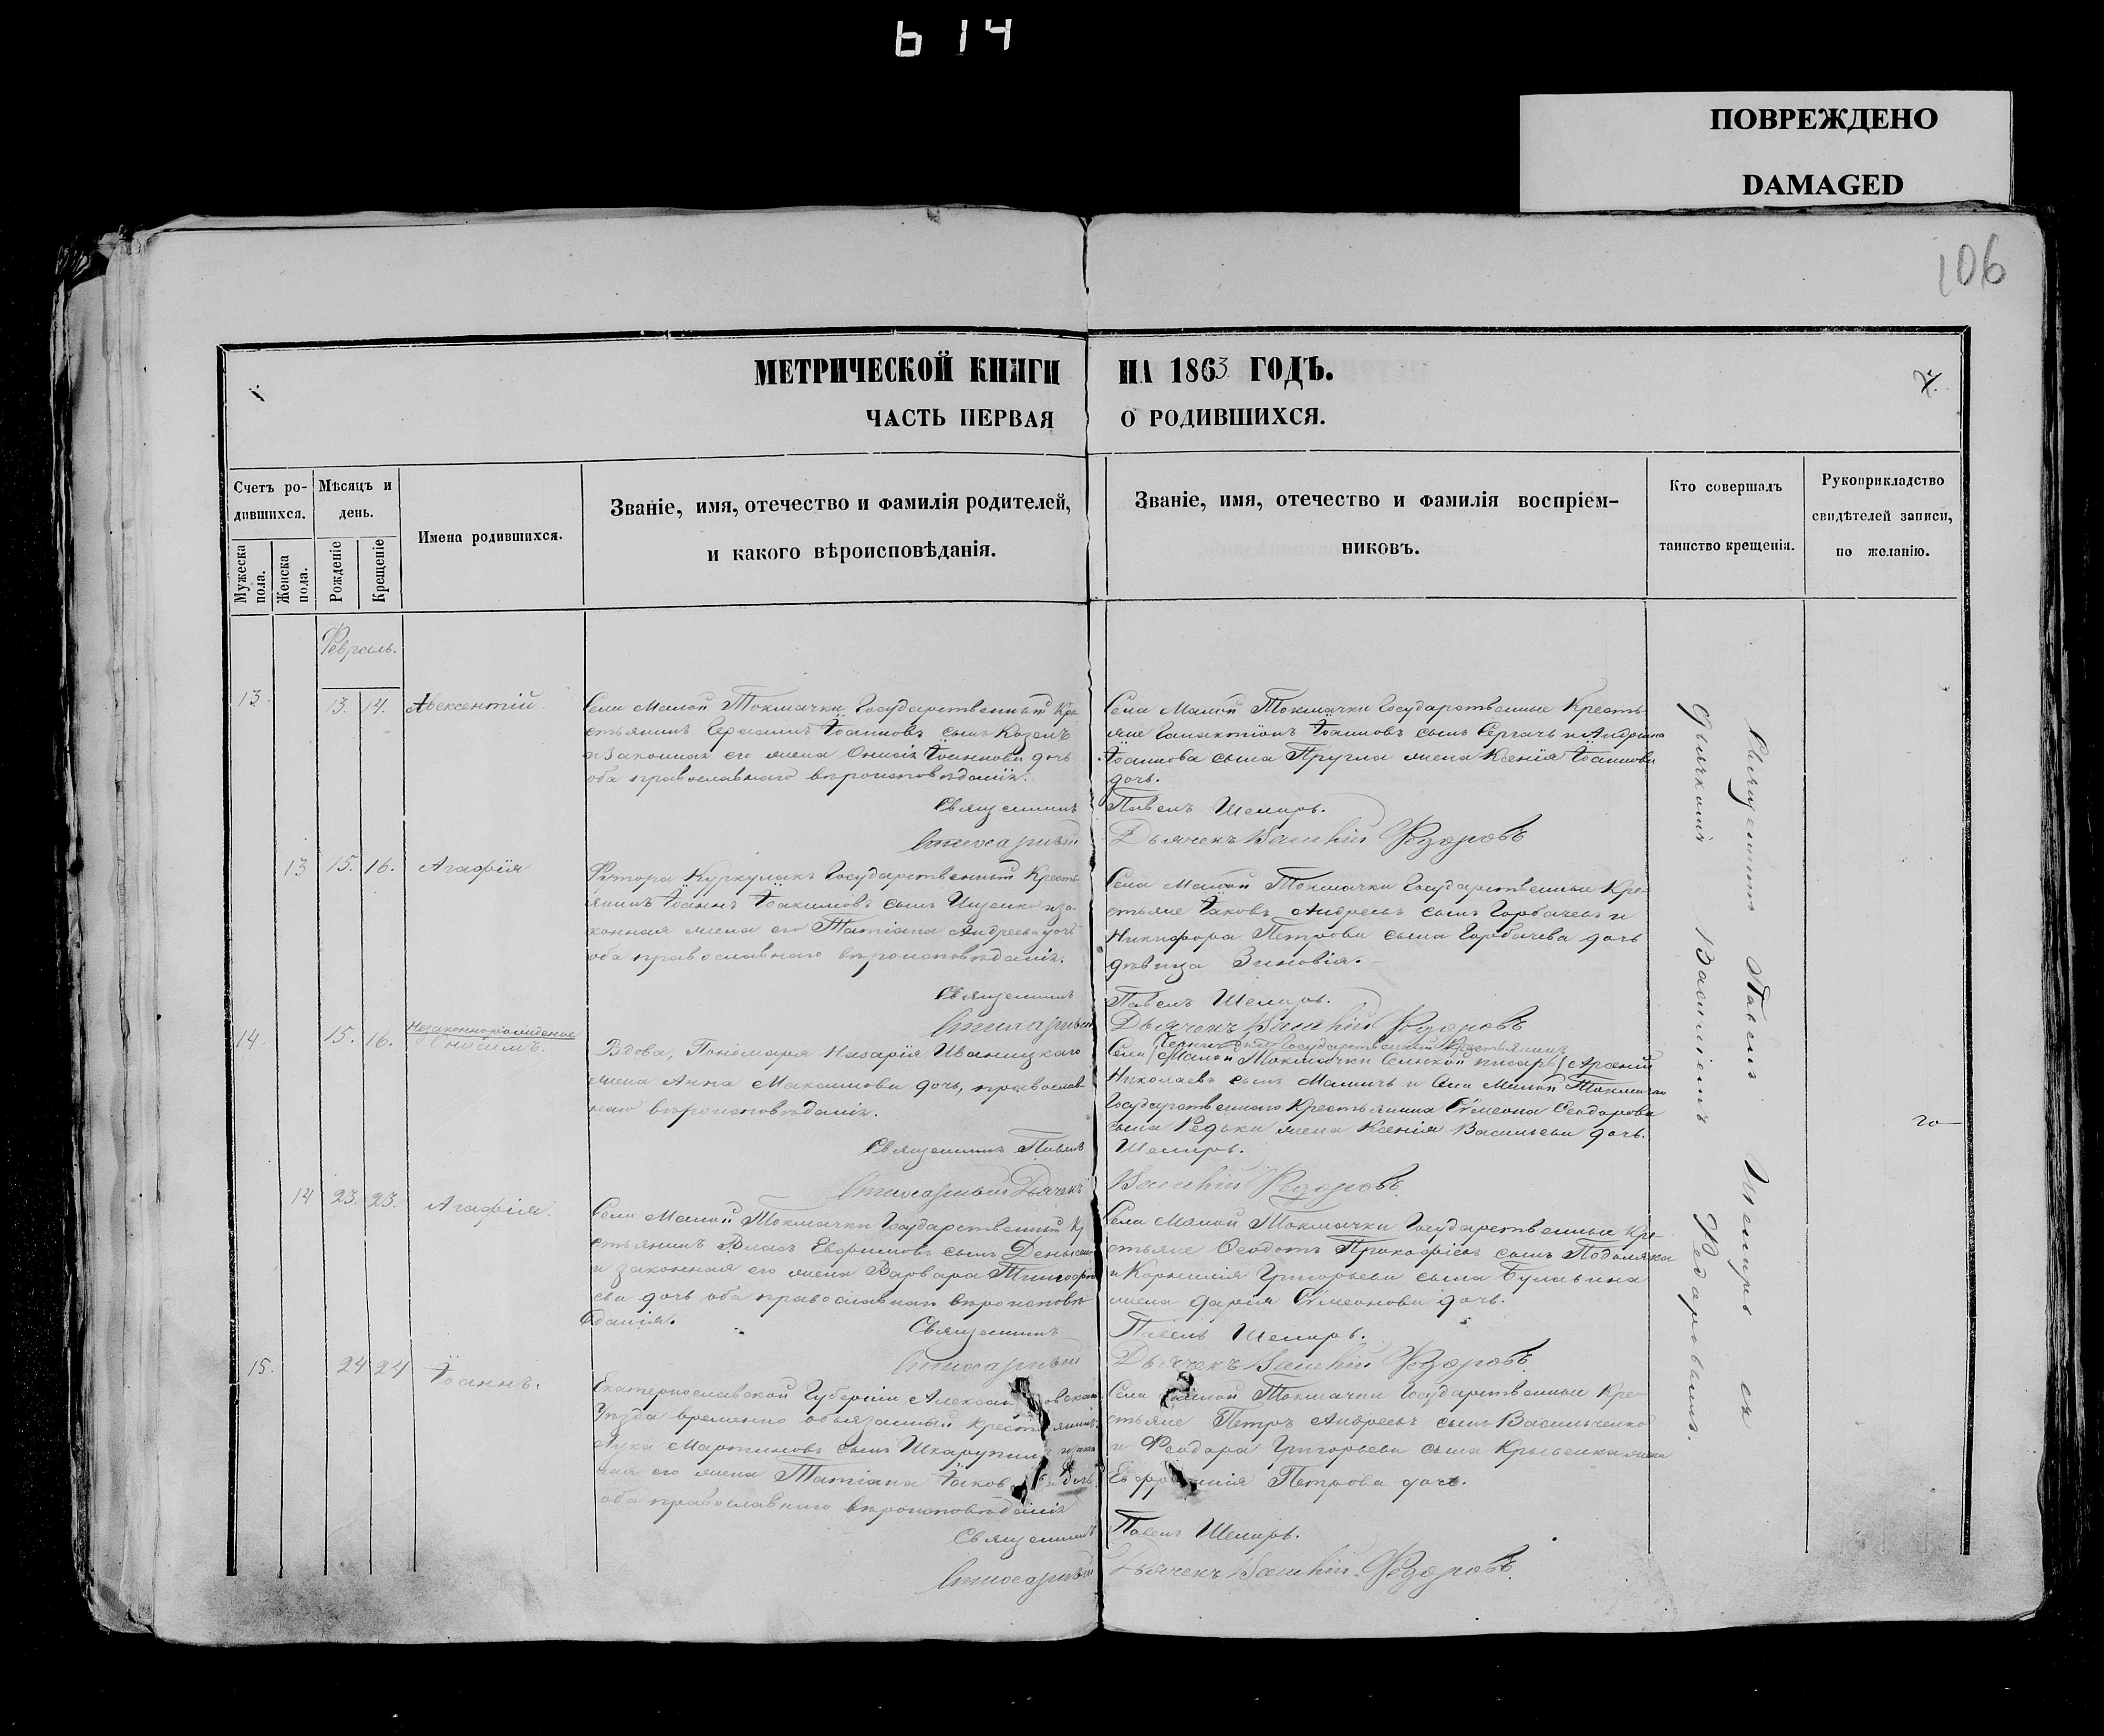 614
ПОВРЕЖДЕНО
DAMAGED
106
МЕТРИЧЕСКОЙ КНИГИ НА 1863 ГОДЪ.
ЧАСТЬ ПЕРВАЯ О РОДИВШИХСЯ.
Счетъ ро-
дившихся.
Мужеска пола.
Женска пола.
Мѣсяцъ и
день.
Рожденіе
Крещеніе
Имена родившихся.
Званіе, имя, отечество и фамилія родителей,
и какого вѣроисповѣданія.
Званіе, имя, отечество и фамилія воспріем-
никовъ.
Кто совершалъ
таинство крещенія.
Рукоприкладство
свидѣтелей записи,
по желанію.
Февраль.
13. 13. 14. Авксентій
Села Малой Токмачки Государственный Кре
стьянинъ Герасимъ Іоанновъ сынъ Козелъ
и законная его жена Онисія Іоаннова дочь
оба православнаго вѣроисповѣданія.
Села Малой Токмачки Государственные Кресть-
яне Галактіонъ Іоанновъ сынъ Сергачъ и Андріана
Іоаннова сына Пругла жена Ксенія Іоаннова
дочь.
Священникъ Павелъ Шемиръ.
Дьячекъ Василій Федоровъ
13 15. 16. Агафія
Хутора Куркулакъ Государственный Кресть-
янинъ Іоаннъ Іоакимовъ сынъ Ищенко и за-
конная жена его Татіана Андреева дочь
оба православнаго вѣроисповѣданія.
Села Малой Токмачки Государственные Кре-
стьяне Іаковъ Андреевъ сынъ Горбачевъ и
Никифора Петрова сына Горбачева дочь
дѣвица Зиновія.
Священникъ Павелъ Шемиръ.
Дьячекъ Василій Федоровъ
14. 15. 16. Незаконнорожденное
Онисимъ.
Вдова, Пономаря Назарія Иваницкаго
жена Анна Максимова дочь, православ-
наго вѣроисповѣданія.
Государственный Крестьянинъ
Села Малой Токмачки Сельской писарь Арсеній
Николаевъ сынъ и Села Малой Токмачки
Государственнаго Крестьянина Сѵмеона Ѳеодорова
сына Редьки жена Ксенія Васильева дочь.
Священникъ Павелъ Шемиръ.
Дьячекъ Василій Федоровъ.
14 23. 23. Агафія.
Села Малой Токмачки Государственный Кр
стьянинъ Власъ Евфимовъ сынъ
и законная его жена Варвара Тимофѣ
ева дочь оба православнаго вѣроисповѣ
данія.
Села Малой Токмачки Государственные Кре-
стьяне Ѳеодотъ Прокофіевъ сынъ Подоляка
и Корнилія Григорьева сына Булавина
жена Дарія Сѵмеонова дочь.
Священникъ Павелъ Шемиръ.
Дьячекъ Василій Федоровъ.
15. 24 24 Іоаннъ.
Екатеринославской Губерніи Алексан овскаго
Уѣзда временно обязанный Крест янинъ
Лука Мартиновъ сынъ
ная его жена Татіана Іаков дочь
оба православнаго вѣроисповѣданія
Села Малой Токмачки Государственные Кре-
стьяне Петръ Андреевъ сынъ Васильченко
и Ѳеодора Григорьева сына жена
Евфро нія Петрова дочь.
Священникъ Павелъ Шемиръ.
Дьячекъ Василій Федоровъ.
Священникъ Павелъ Шемиръ съ
Дьячкомъ Василіемъ Федоровымъ.